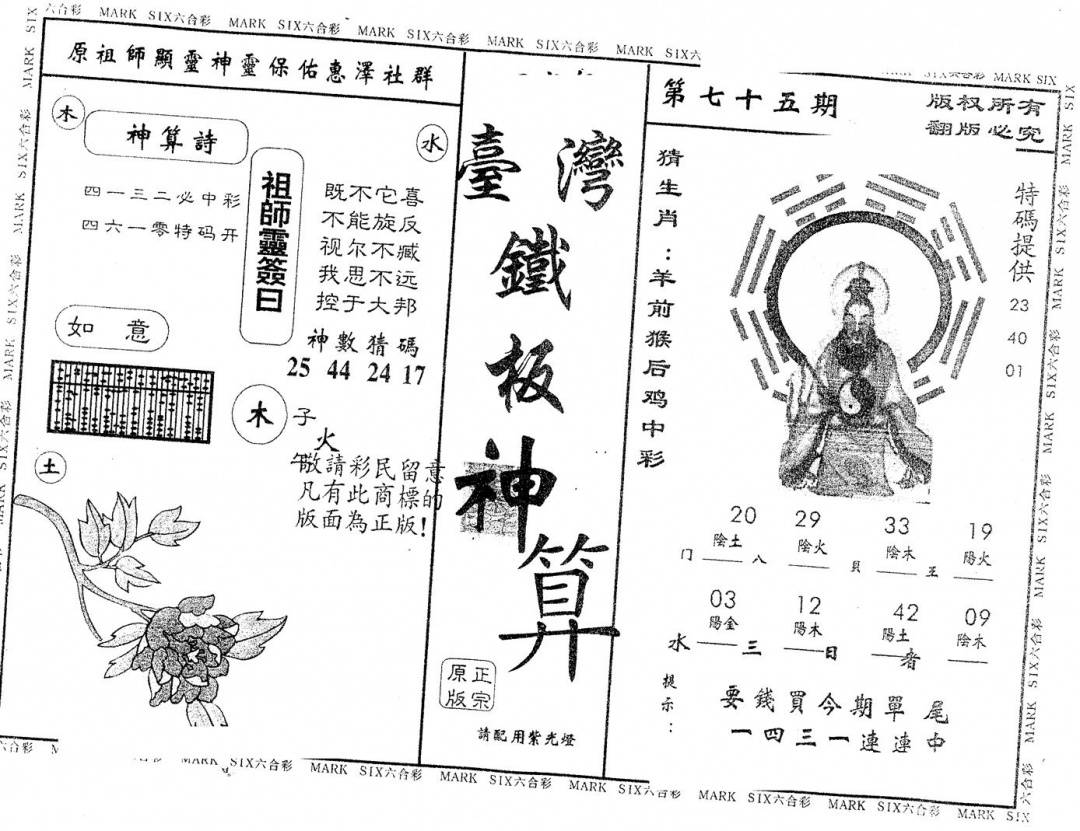 MARK SIX六合彩 MARK SIX六合彩 MARK SIX六合彩 MARK SIX六合彩 MARK SIX六
MARK SIX
原祖師顯靈神靈保佑惠澤社群
木
神算詩
水
四一三二必中彩
四六一零特码开
祖師靈簽曰
既不它喜
不能旋反
视尔不臧
我思不远
控于大邦
神數猜碼
25 44 24 17
如意
木
子
火
午
敬請彩民留意
凡有此商標的
版面為正版!
土
臺灣
鐵
板
神
算
正宗
原版
請配用紫光燈
第七十五期
版权所有
翻版必究
猜生肖:羊前猴后鸡中彩
特碼提供
23
40
01
20 29 33 19
陰土 陰火 陰木 陽火
门 八 貝 王
03 12 42 09
陽金 陽木 陽土 陰木
水 三 日 者
提示:
要錢買今期單尾
一四三一連連中
MARK SIX六合彩 MARK SIX六合彩 MARK SIX六合彩 MARK SIX六合彩 MARK SIX六合彩 MARK SIX